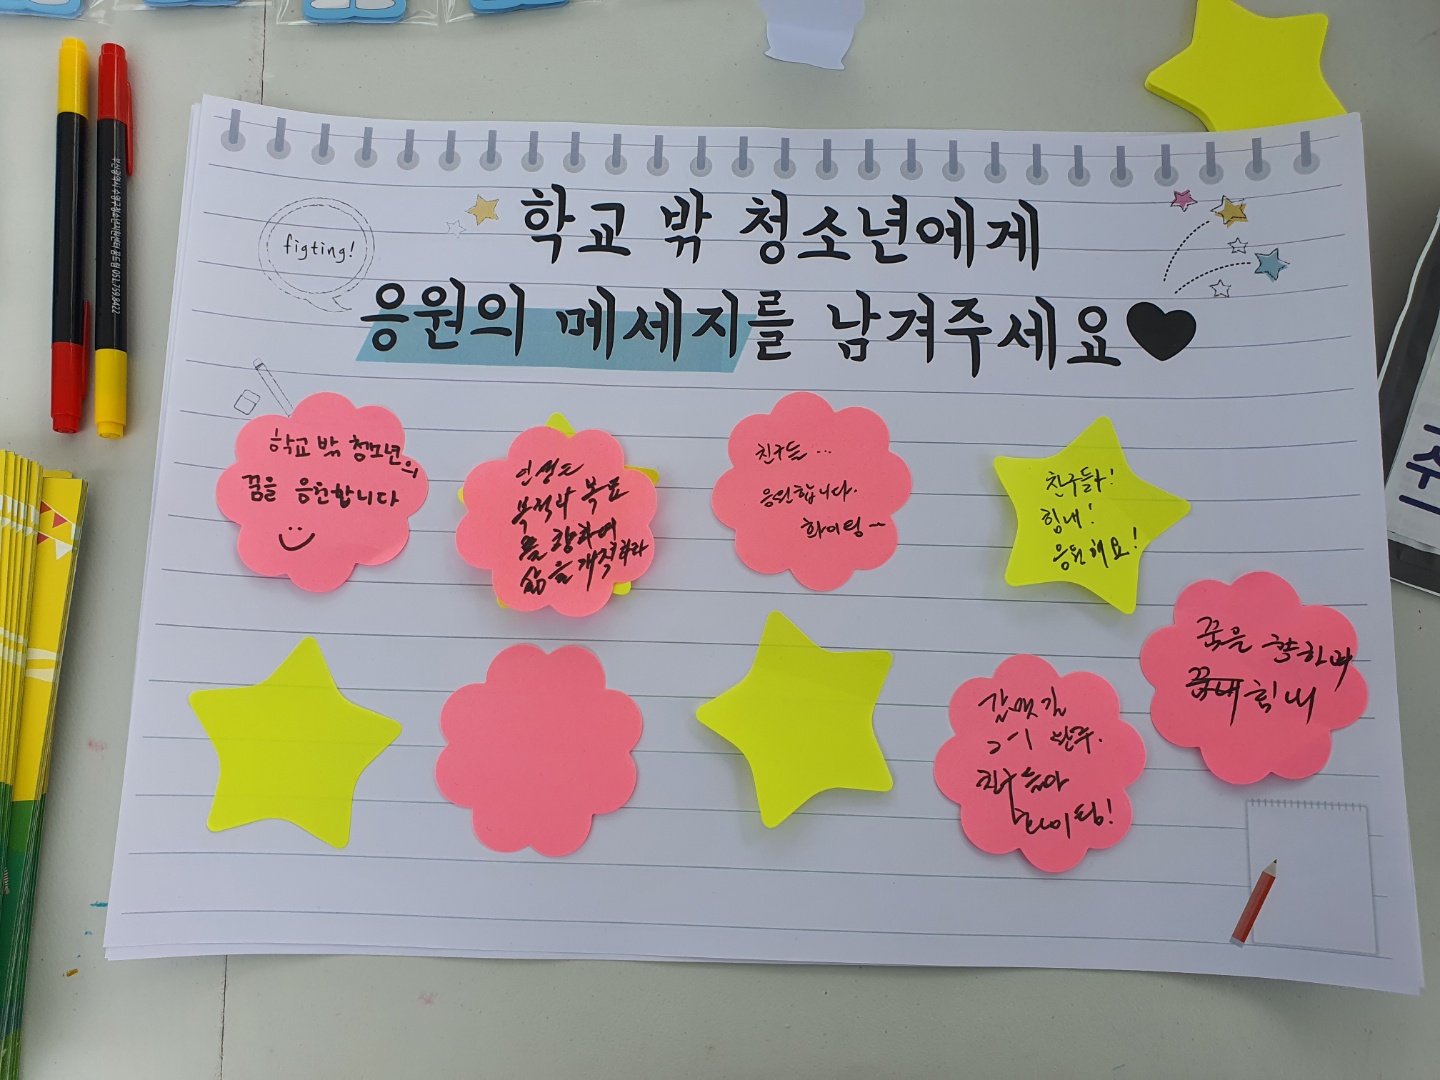 figting!
학교 밖 청소년에게
응원의 메세지를 남겨주세요
학교 밖 청소년의
꿈을 응원합니다
인생은
목적과 목표
를 향하여
삶을 개척하라
친구들...
응원합니다.
화이팅~
친구들아!
힘내!
응원해요!
꿈을 향하여
힘내
갈맷길
2-1 완주.
친구들아
화이팅!
051.759.8422
주